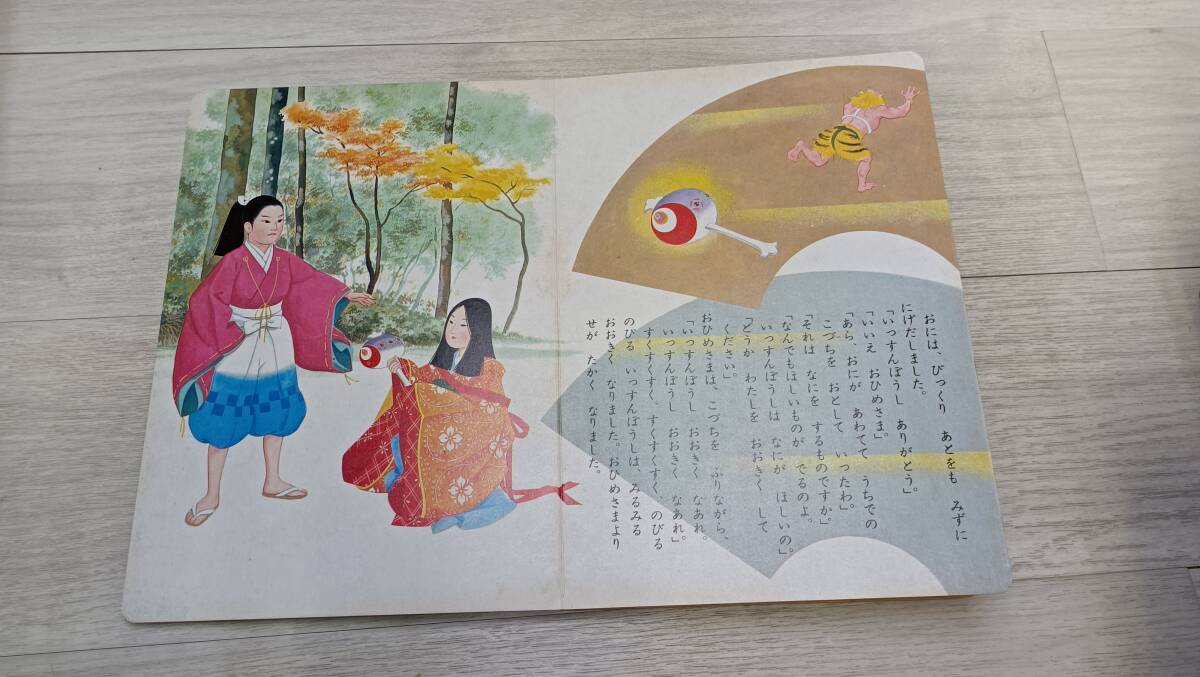 おには、びっくり　あとをも　みずに
にげだしました。
「いっすんぼうし　ありがとう」。
「いいえ　おひめさま」。
「あら、おにが　あわてて　うちでの
こづちを　おとして　いったわ」。
「それは　なにを　するものですか」。
「なんでもほしいものが　でるのよ。
いっすんぼうしは　なにが　ほしいの」。
「どうか　わたしを　おおきく　して
ください」
おひめさまは、こづちを　ふりながら、
「いっすんぼうし　おおきく　なあれ。
いっすんぼうし　おおきく　なあれ」
すくすくすく、すくすくすく、のびる
のびる　いっすんぼうしは、みるみる
おおきく　なりました。おひめさまより
せが　たかく　なりました。